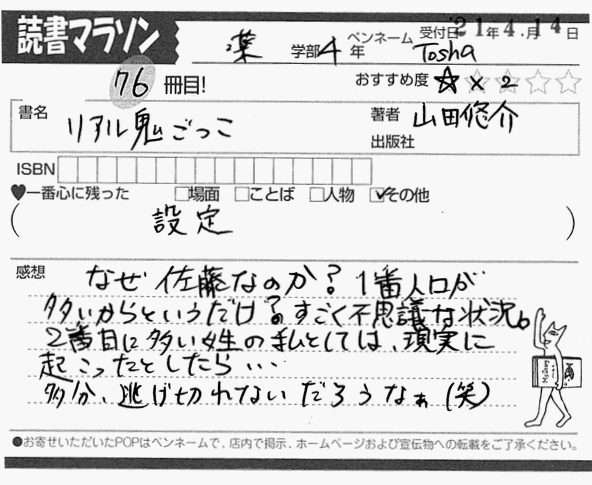 読書マラソン
受付日 '21年4.月14日
薬 学部4年 ペンネーム Tosha
76 冊目! おすすめ度 ☆×2
書名 リアル鬼ごっこ 著者 山田悠介
出版社
ISBN
♥一番心に残った □場面 □ことば □人物 ☑その他
( 設定 )
感想 なぜ佐藤なのか?1番人口が
多いからというだけ?すごく不思議な状況。
2番目に多い姓の私としては、現実に
起こったとしたら・・・
多分、逃げ切れないだろうなぁ(笑)
●お寄せいただいたPOPはペンネームで、店内で掲示、ホームページおよび宣伝物への転載をご了承ください。